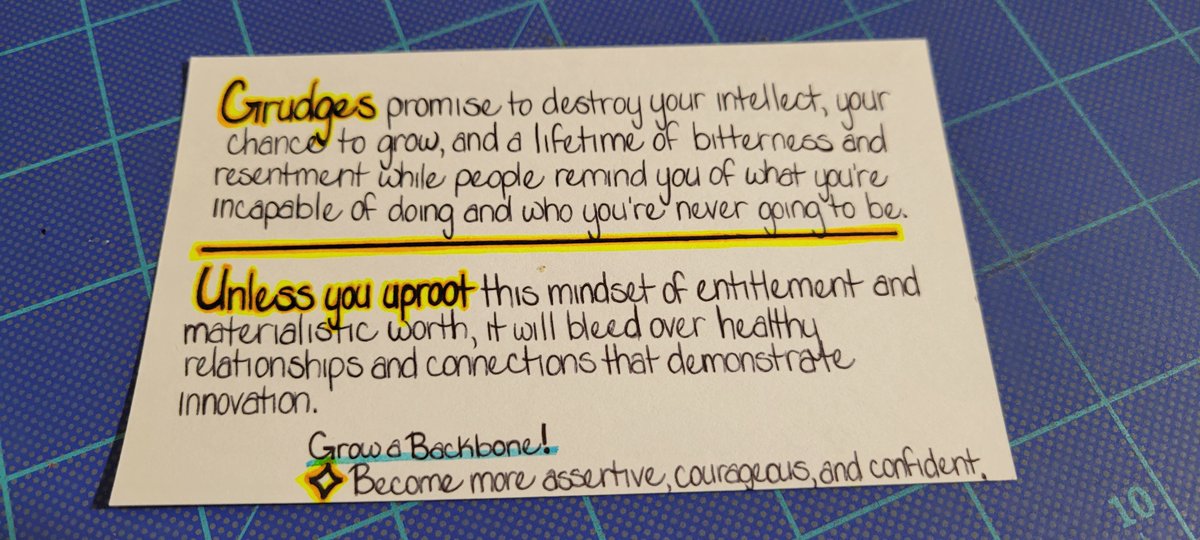 Grudges promise to destroy your intellect, your
chance to grow, and a lifetime of bitterness and
resentment while people remind you of what you're
incapable of doing and who you're never going to be.
Unless you uproot this mindset of entitlement and
materialistic worth, it will bleed over healthy
relationships and connections that demonstrate
innovation.
Grow a Backbone!
Become more assertive, courageous, and confident.
10